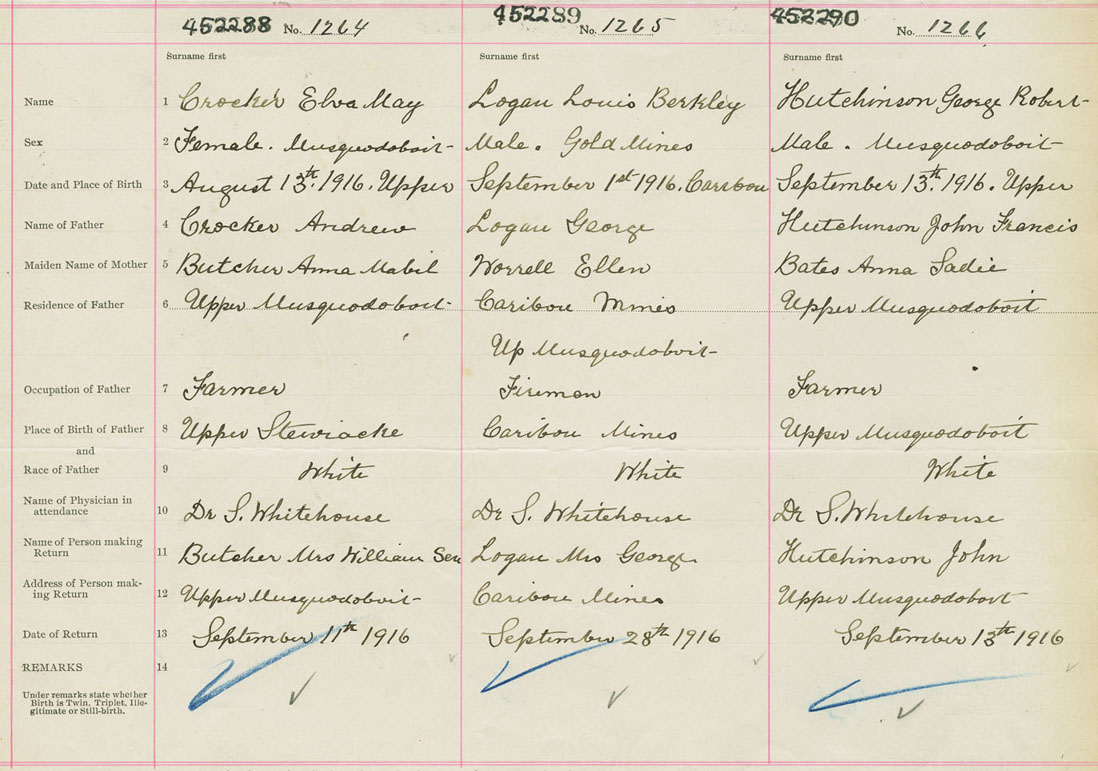 452288 No. 1264 452289 No. 1265 452290 No. 1266
Surname first Surname first Surname first
Name 1 Crocker Elva May Logan Louis Berkley Hutchinson George Robert
Sex 2 Female. Musquodoboit Male. Gold Mines Male. Musquodoboit
Date and Place of Birth 3 August 13th. 1916. Upper September 1st 1916. Carribou September 13th. 1916. Upper
Name of Father 4 Crocker Andrew Logan George Hutchinson John Francis
Maiden Name of Mother 5 Butcher Anna Mabil Worrell Ellen Bates Anna Sadie
Residence of Father 6 Upper Musquodoboit Caribou Mines Upper Musquodoboit
Up Musquodoboit
Occupation of Father 7 Farmer Fireman Farmer
Place of Birth of Father 8 Upper Stewiacke Caribou Mines Upper Musquodoboit
and
Race of Father 9 White White White
Name of Physician in
attendance 10 Dr S. Whitehouse Dr S. Whitehouse Dr S. Whitehouse
Name of Person making
Return 11 Butcher Mrs William Sen Logan Mrs George Hutchinson John
Address of Person mak-
ing Return 12 Upper Musquodoboit Caribou Mines Upper Musquodoboit
Date of Return 13 September 11th 1916 September 28th 1916 September 13th 1916
REMARKS 14
Under remarks state whether
Birth is Twin, Triplet, Ille-
gitimate or Still-birth.